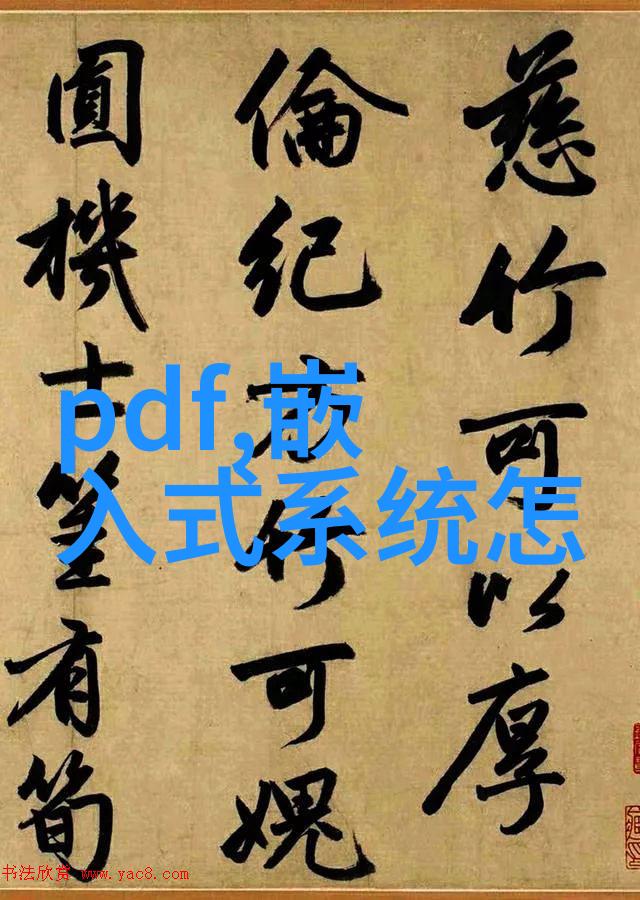 慈竹可以厚
倫紀方竹可媿
圓機士筀有筍
pdf,嵌
入式系统怎
书法欣赏 www.yac8.com